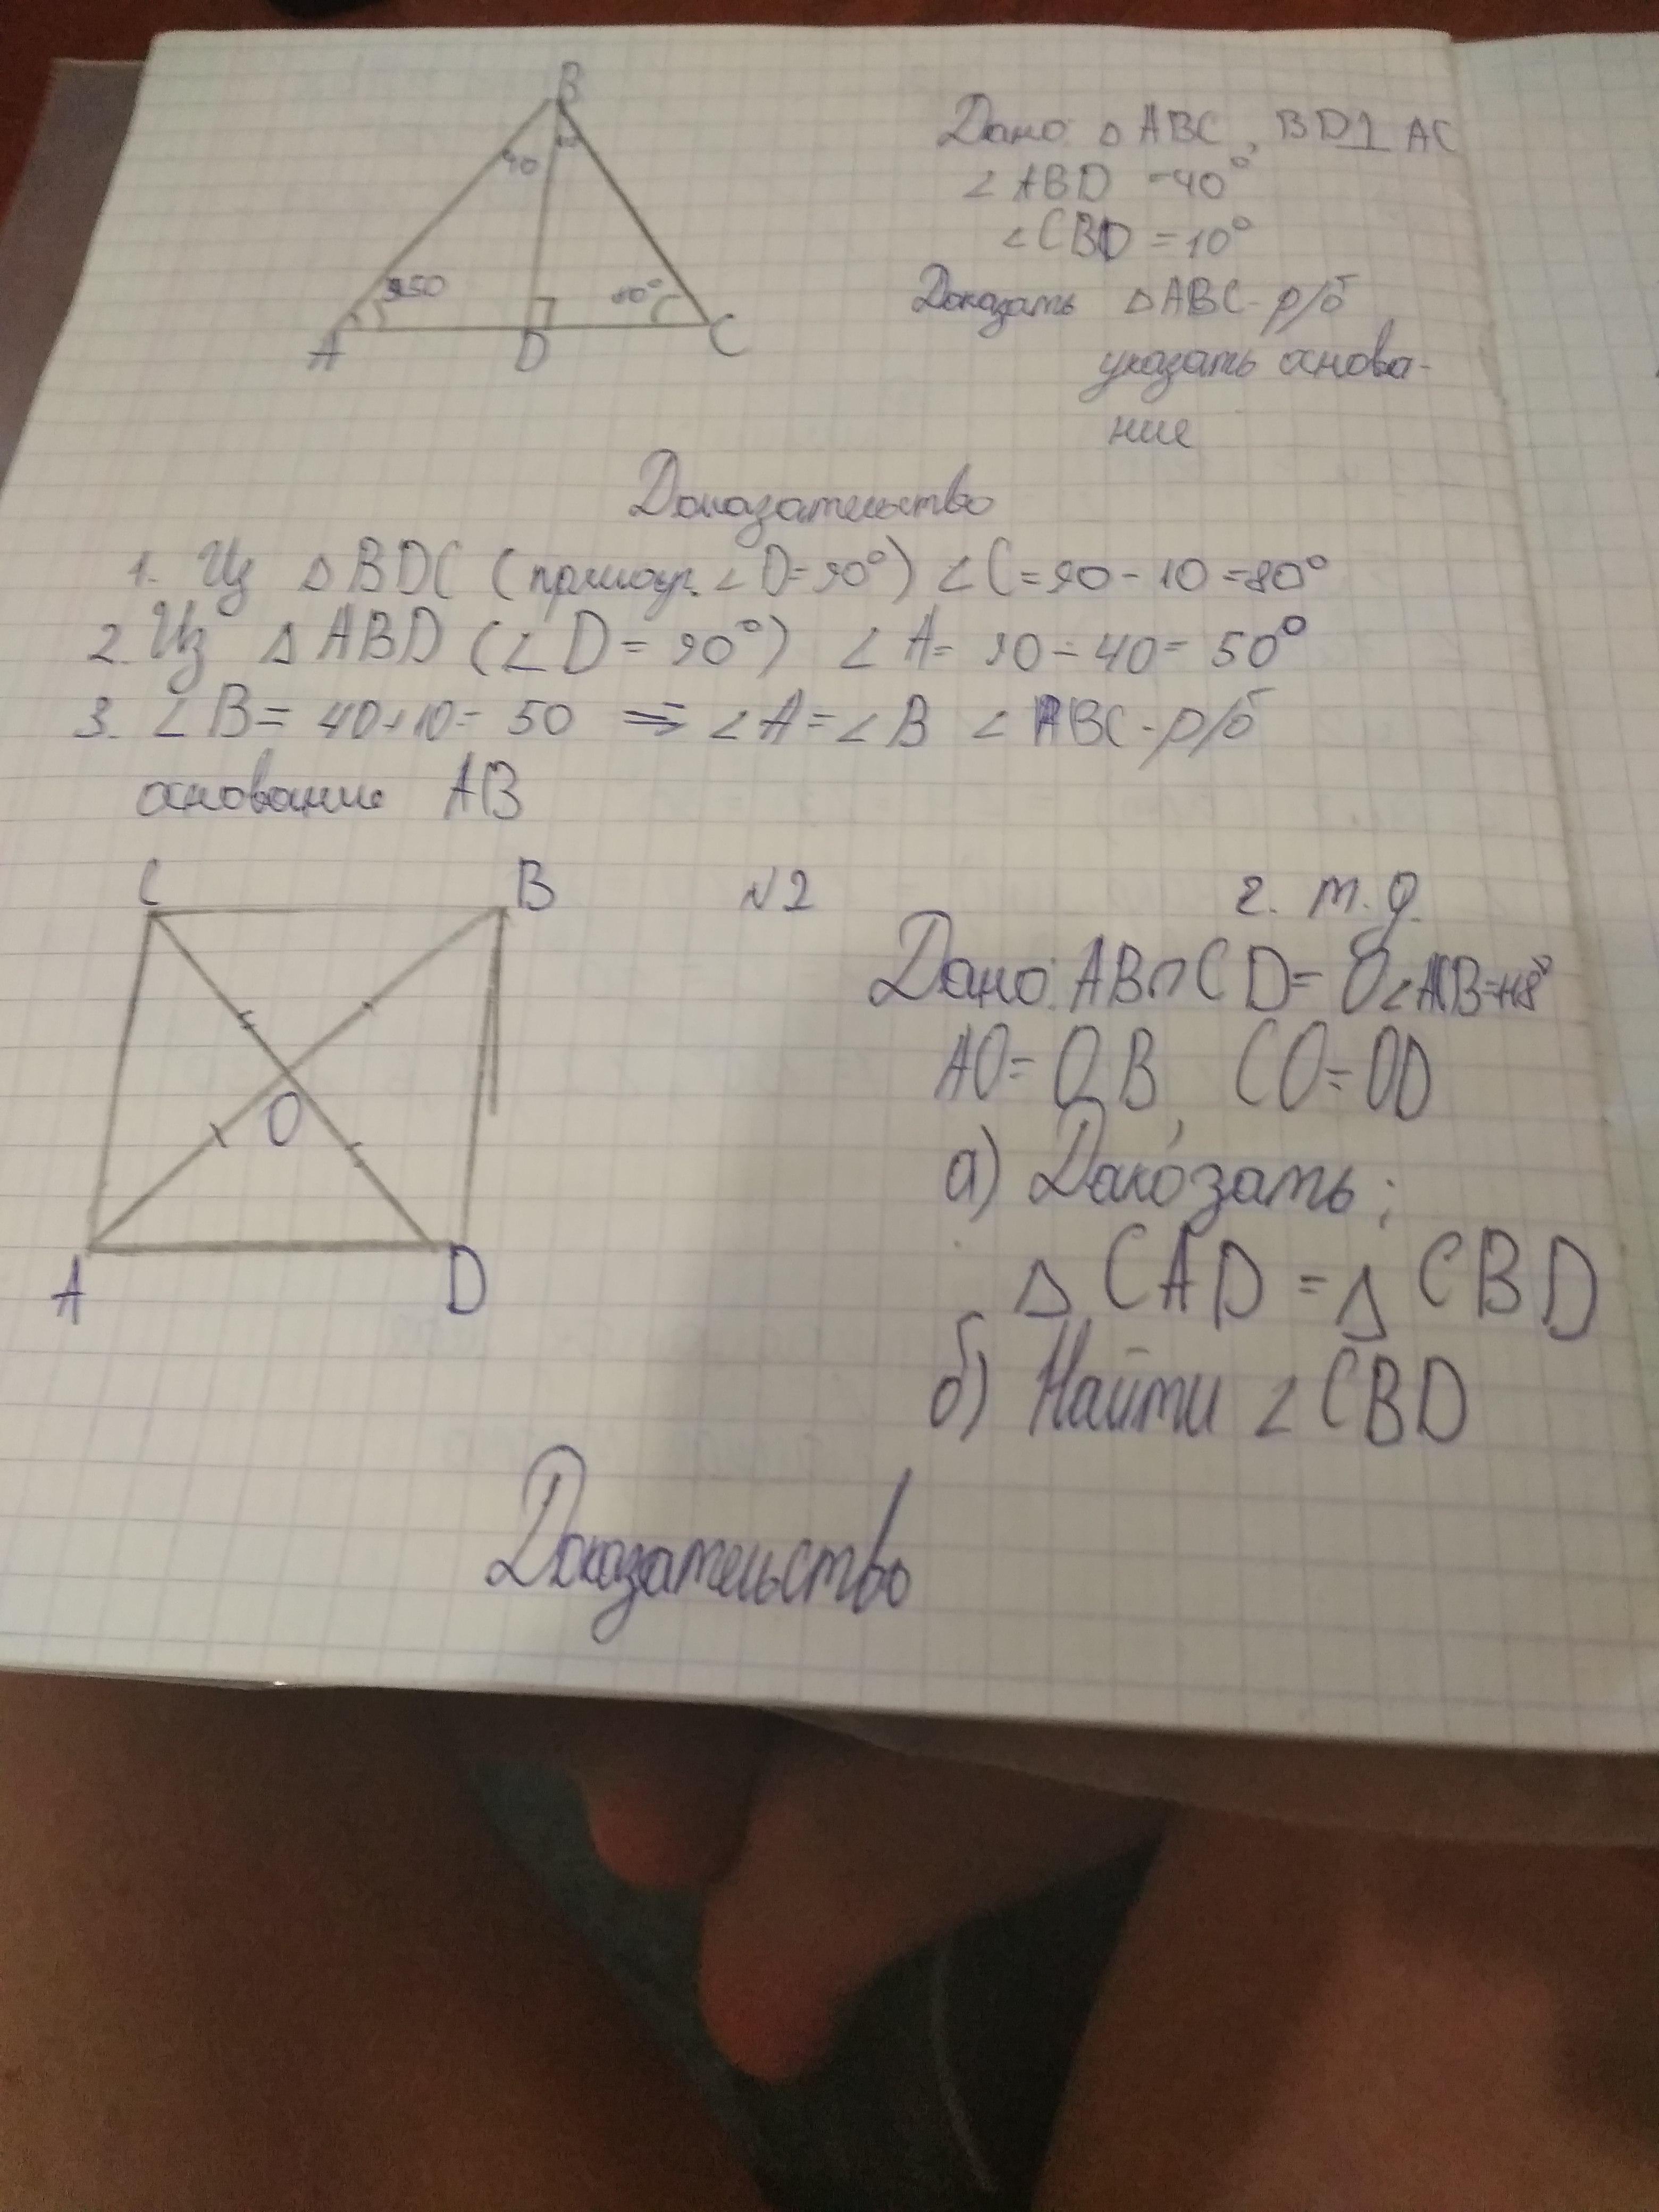 B
40
10
50
80°
A
D
C
Дано: △ ABC, BD⊥AC
∠ ABD =40°
∠CBD =10°
Доказать △ABC-р/б
указать основа-
ние
Доказательство
1. Из △ BDC (прямоуг. ∠D=90°) ∠C=90-10=80°
2. Из △ ABD (∠D= 90°) ∠ A= 90-40= 50°
3. ∠B= 40+10= 50 ⇒ ∠A=∠B ∠ ABC-р/б
основание AB
ч. т. д.
C
B
O
A
D
№2
Дано: AB∩CD= O
AO= OB, CO=OD
а) Доказать;
△ CAD = △ CBD
б) Найти ∠ CBD
Доказательство